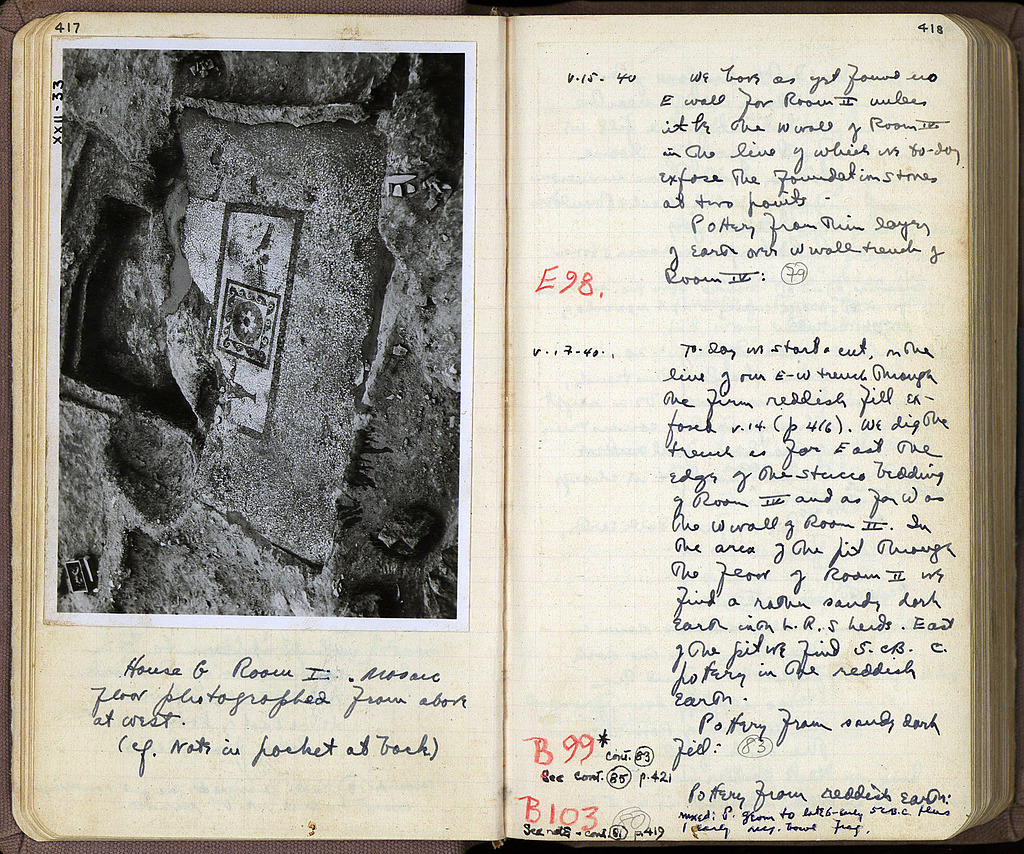 417
XXII-33
House G Room I. Mosaic
floor photographed from above
at west.
(cf. Note in pocket at back)
418
V-15-40 We have as yet found no
E wall for Room II unless
it be the W wall of Room III
in the line of which we to-day
expose the foundation stones
at two points.
Pottery from thin layer
of earth over W wall trench of
E98. Room IV: 79
V-17-40. To-day we start a cut, in the
line of our E-W trench through
the firm reddish fill ex-
posed V.14 (p 416). We dig the
trench as far East the
edge of the stucco bedding
of Room III and as far W as
the W wall of Room II. In
the area of the pit through
the floor of Room II we
find a rather sandy dark
earth with L.R. sherds. East
of the pit we find 5. c B. C.
pottery in the reddish
earth.
Pottery from sandy dark
B 99* fill: 83
cont. 83
See cont. 85 p. 421
Pottery from reddish earth:
B103 80 mixed: P. geom to late 6-early 5 c B.C. plus
See note + cont. 81 p 419 1 early meg. bowl frag.